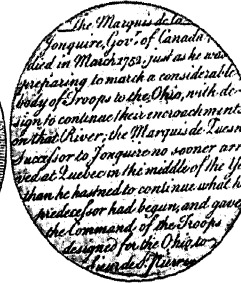 The Marquis de la
Jonquire, Gov.r of Canada
died in March 1752. just as he was
preparing to march a considerable
body of Troops to the Ohio, with de-
sign to continue their encroachments
on that River; the Marquis de Quesne
Successor to Jonquere no sooner arri
ved at Quebec in the middle of the Y
than he hastned to continue what h
predecessor had begun, and gave
the Command, of the Troops
designed for the Ohio, to